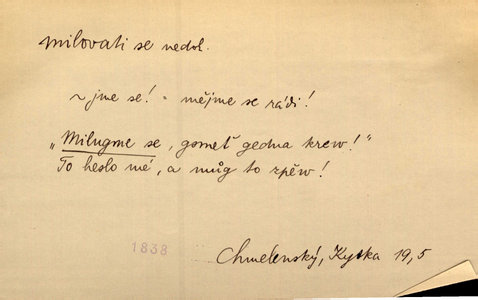 milovati se nedok.
~ jme se! = mějme se rádi!
„Milugme se, gsmeť gedna krew!“
To heslo mé, a můg to zpěw!
1838
Chmelenský, Kytka 19,5